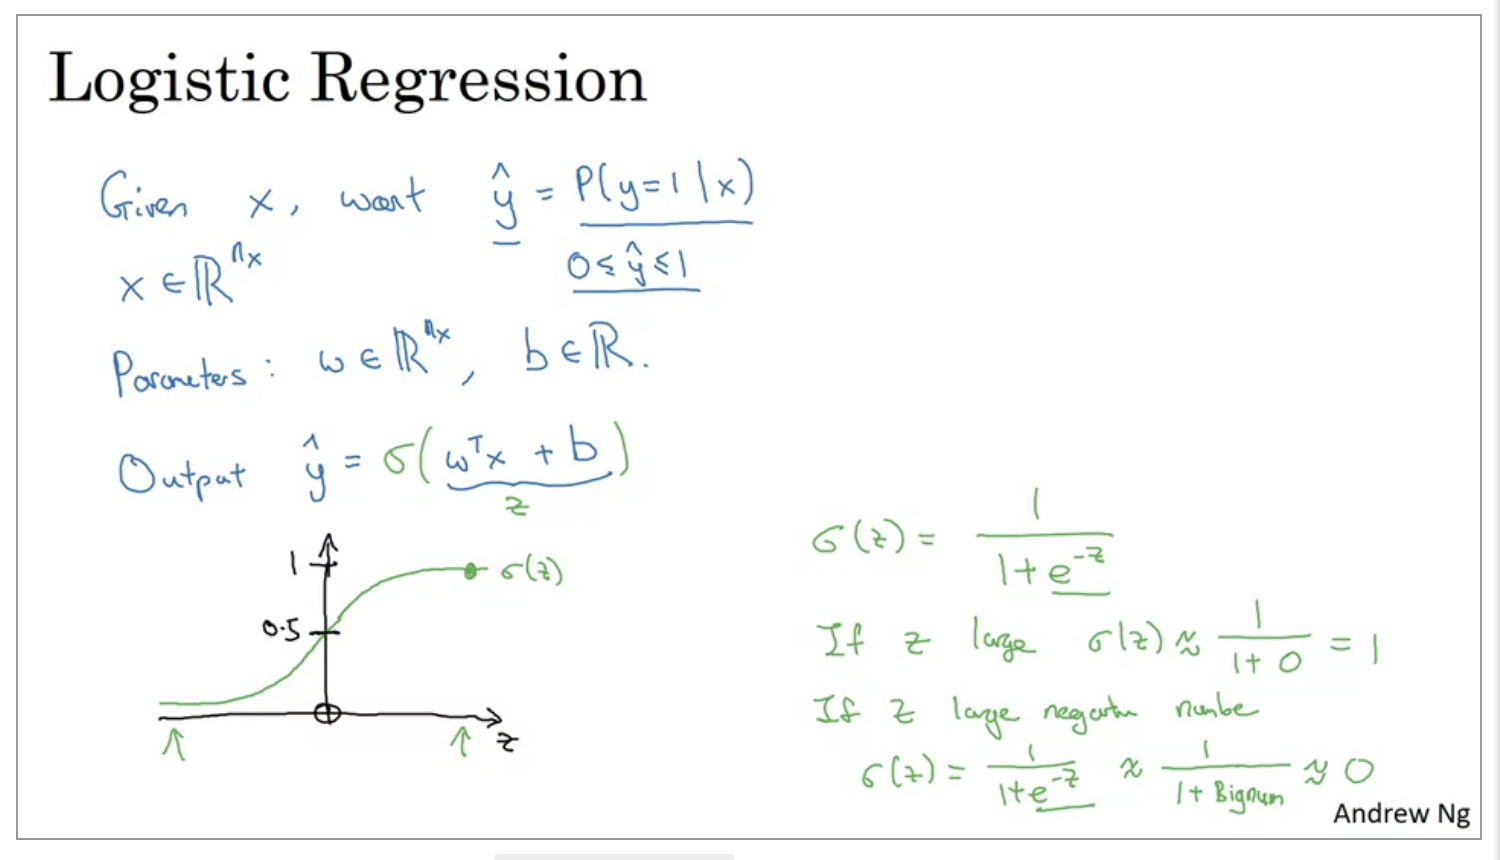 Logistic Regression
Given x, want ŷ = P(y=1|x)
x ∈ ℝ^nx
0 ≤ ŷ ≤ 1
Parameters: w ∈ ℝ^nx, b ∈ ℝ.
Output ŷ = σ(wᵀx + b)
z
1
σ(z)
0.5
z
σ(z) = 1/(1+e^-z)
If z large σ(z) ≈ 1/(1+0) = 1
If z large negative number
σ(z) = 1/(1+e^-z) ≈ 1/(1+Bignum) ≈ 0
Andrew Ng